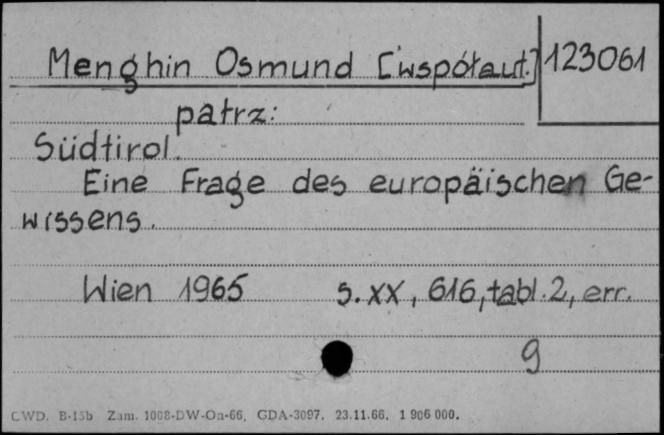 Menghin Osmund [współaut.] 123061
patrz:
Südtirol.
Eine Frage des europäischen Ge-
wissens.
Wien 1965 s. XX, 616, tabl. 2, err.
9
CWD. B-15b Zam. 1068-DW-On-66. GDA-3097. 23.11.66. 1 906 000.